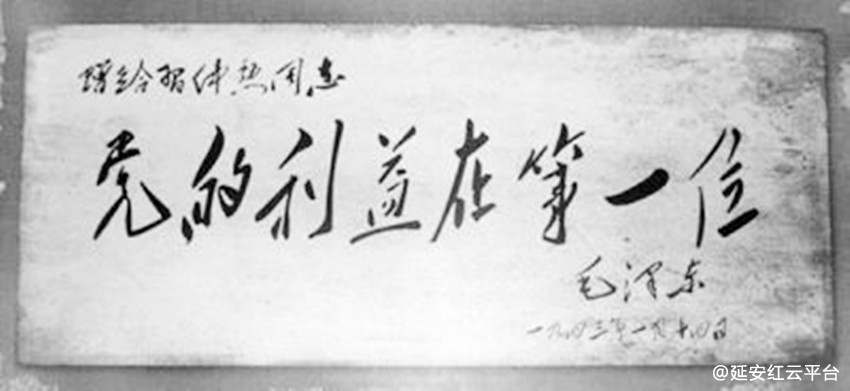 赠给习仲勋同志
党的利益在第一位
毛泽东
一九四三年一月十四日
@延安红云平台